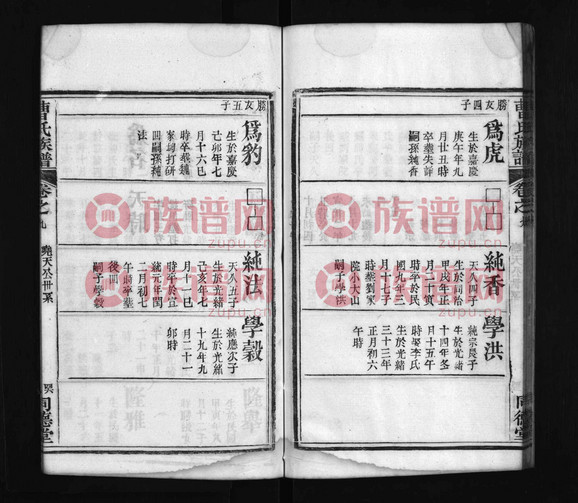 曹氏族譜
卷之九
同德堂
勝友四子
爲虎
生於嘉慶
庚午年九
月廿丑時
卒葬失詳
嗣孫純香
純香
天久四子
生於同治
甲戌年正
月二十寅
時卒於民
國九年三
月十七子
時葬劉家
隴小大山
嗣子學洪
學洪
純宗長子
生於光緒
十四年冬
月十五午
時娶李氏
卒於民國
三十三年
正月初六
午時
勝友五子
爲豹
生於嘉慶
己卯年七
月十六巳
時卒葬
嗣孫純
法
純法
天久五子
生於光緒
己亥年七
月十一巳
時卒於宣
統元年閏
二月初七
午時卒葬
後園
嗣子學穀
學穀
純應次子
生於光緒
十九年九
月二十一
卯時
曹氏族譜
卷之九
堯天公世系
同德堂
族谱网
zupu.cn